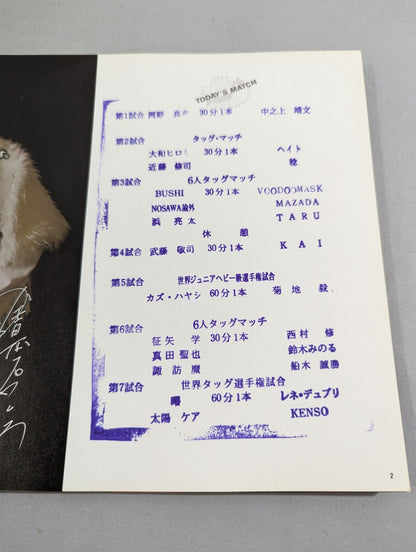 TODAY'S MATCH
第1試合 河野 真幸 30分1本 中之上 靖文
第2試合 タッグ・マッチ
大和ヒロシ 30分1本 ヘイト
近藤 修司 稔
第3試合 6人タッグマッチ
BUSHI 30分1本 VOODOOMASK
NOSAWA論外 MAZADA
浜 亮太 TARU
休 憩
第4試合 武藤 敬司 30分1本 KAI
第5試合 世界ジュニアヘビー級選手権試合
カズ・ハヤシ 60分1本 菊地 毅
第6試合 6人タッグマッチ
征矢 学 30分1本 西村 修
真田 聖也 鈴木みのる
諏訪魔 船木 誠勝
第7試合 世界タッグ選手権試合
曙 60分1本 レネ・デュプリ
太陽 ケア KENSO
2